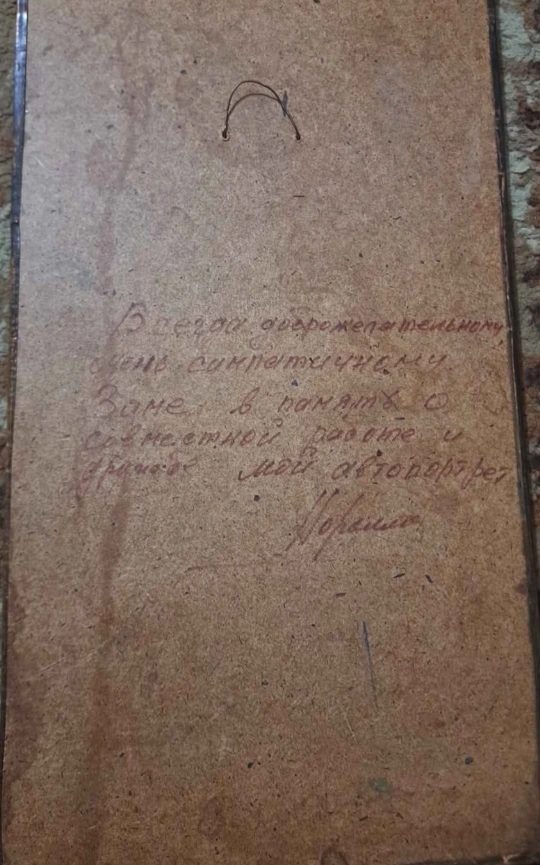 Всегда доброжелательному,
очень симпатичному
в память о
совместной работе и
дружбе мой автопортрет